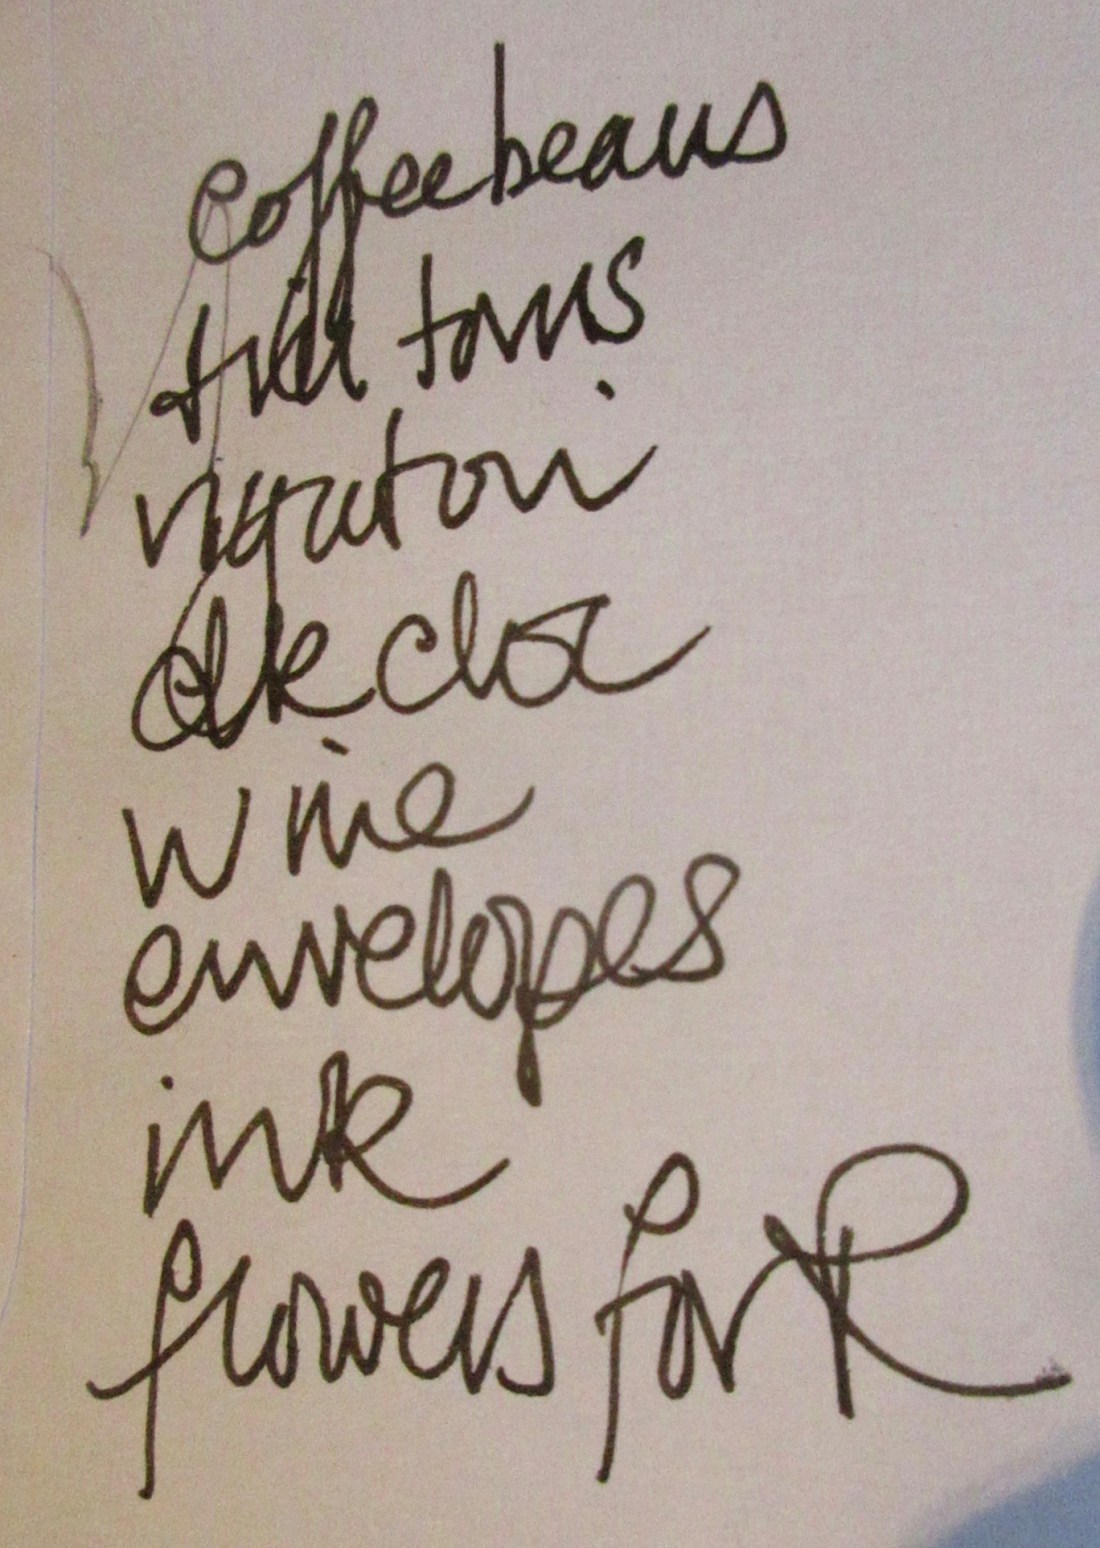 coffee beans
toms
rigatoni
dk choc
wine
envelopes
ink
flowers for R